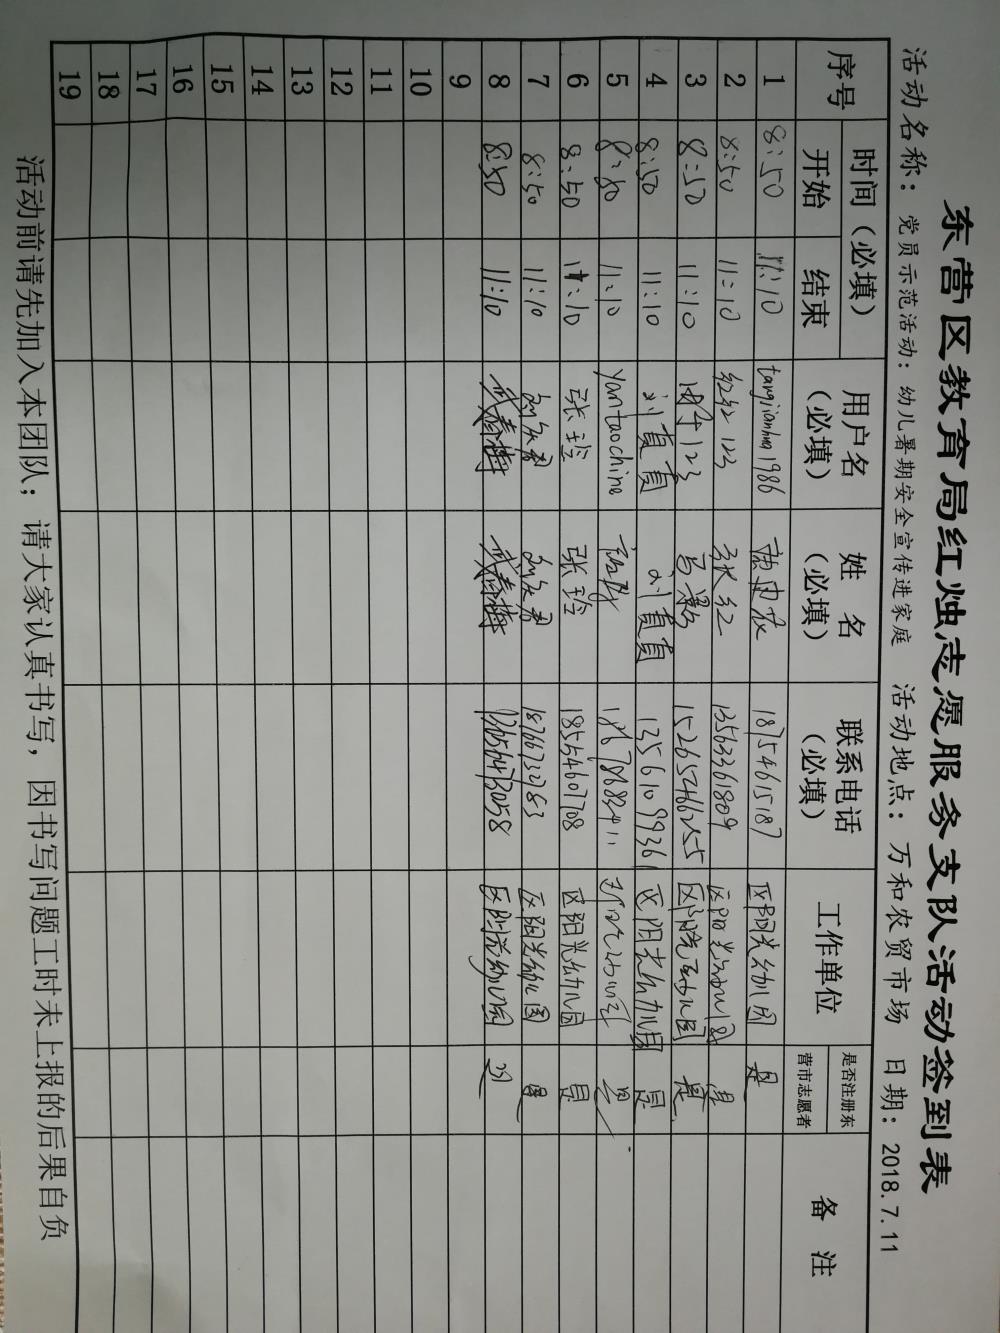 东营区教育局红烛志愿服务支队活动签到表
活动名称：党员示范活动：幼儿暑期安全宣传进家庭 活动地点：万和农贸市场 日期：2018.7.11
序号 时间（必填） 开始 结束 用户名（必填） 姓名（必填） 联系电话（必填） 工作单位 是否注册东营市志愿者 备注
1 8:50 11:10 tangjianhua1986 唐建花 18754615187 区阳光幼儿园 是
2 8:50 11:10 红红123 张红 13563361809 区阳光幼儿园 是
3 8:50 11:10 15265466255 区阳光幼儿园 是
4 8:50 11:10 刘真真 刘真真 13561099361 区阳光幼儿园 是
5 8:50 11:10 yantaochine 18678683411 是
6 8:50 11:10 张玲 张玲 18554607708 区阳光幼儿园 是
7 8:50 11:10 18766732783 区阳光幼儿园 是
8 8:50 11:10 武春梅 武春梅 区阳光幼儿园
9
10
11
12
13
14
15
16
17
18
19
活动前请先加入本团队；请大家认真书写，因书写问题工时未上报的后果自负